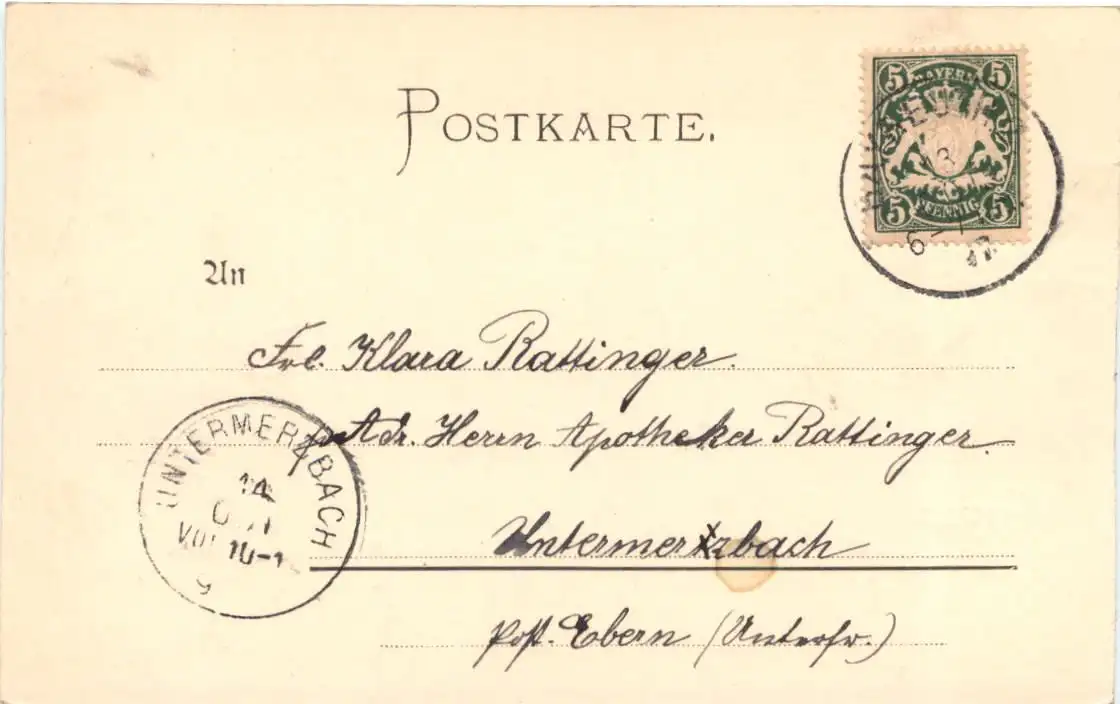 POSTKARTE.
5 5
BAYERN
PFENNIG
5 5
An
Frl. Klara Rattinger.
Adr. Herrn Apotheker Rattinger.
Untermerzbach
Post. Ebern (Unterfr.)
UNTERMERZBACH
14
VOR 10-1
9